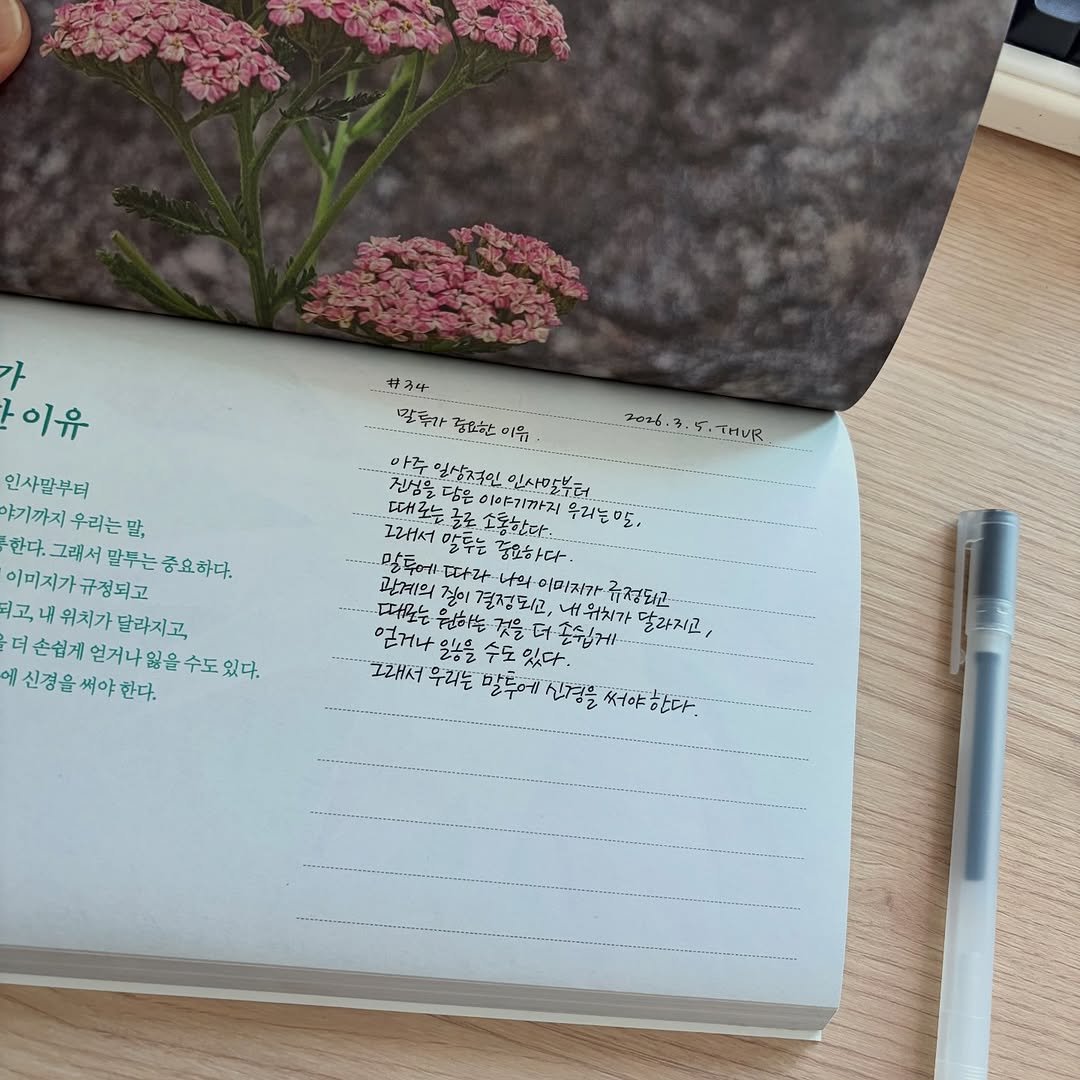 가
한 이유
인사말부터
야기까지 우리는 말,
통한다. 그래서 말투는 중요하다.
이미지가 규정되고
되고, 내 위치가 달라지고,
을 더 손쉽게 얻거나 잃을 수도 있다.
에 신경을 써야 한다.
#34
2026. 3. 5. THUR.
말투가 중요한 이유.
아주 일상적인 인사말부터
진심을 담은 이야기까지 우리는 말,
때로는 글로 소통한다.
그래서 말투는 중요하다.
말투에 따라 나의 이미지가 규정되고
관계의 질이 결정되고, 내 위치가 달라지고,
때로는 원하는 것을 더 손쉽게
얻거나 잃을 수도 있다.
그래서 우리는 말투에 신경을 써야 한다.